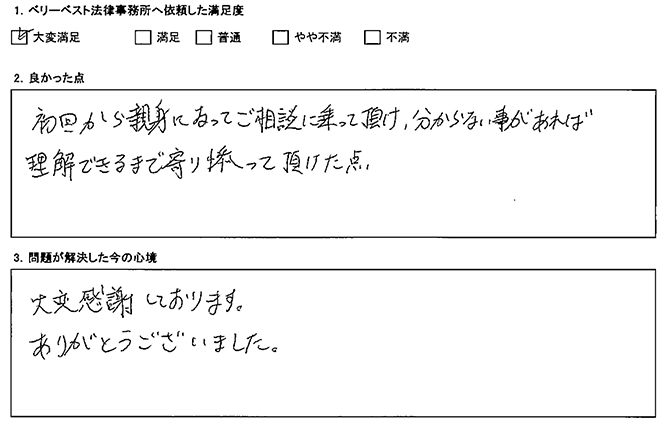 1. ベリーベスト法律事務所へ依頼した満足度
☑ 大変満足 □ 満足 □ 普通 □ やや不満 □ 不満
2. 良かった点
初回から親身になってご相談に乗って頂け、分からない事があれば
理解できるまで寄り添って頂けた点。
3. 問題が解決した今の心境
大変感謝しております。
ありがとうございました。